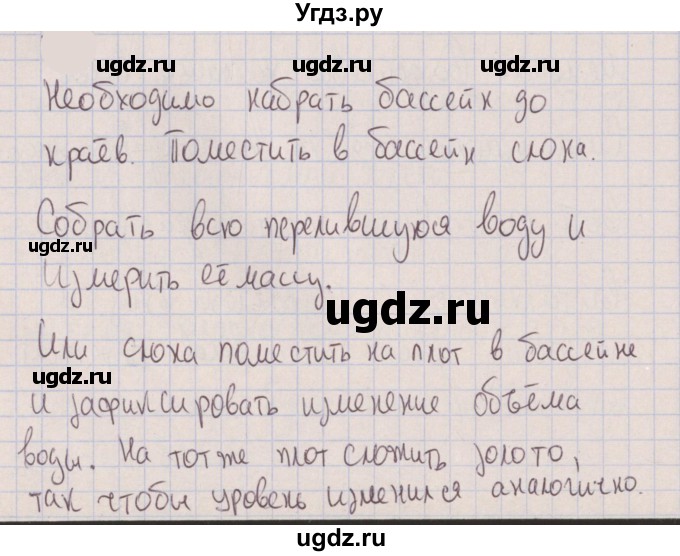 Угдз.ру
ugdz.ru ugdz.ru ugdz.ru
Необходимо набрать бассейн до
краёв. Поместить в бассейн слона.
Собрать всю перелившуюся воду и
ugdz.ru
измерить её массу.
ugdz.ru
Или слона поместить на плот в бассейне
ugdz.ru
и зафиксировать изменение объёма
воды. На тот же плот сложить золото,
так чтобы уровень изменился аналогично.
ugdz.ru ugdz.ru